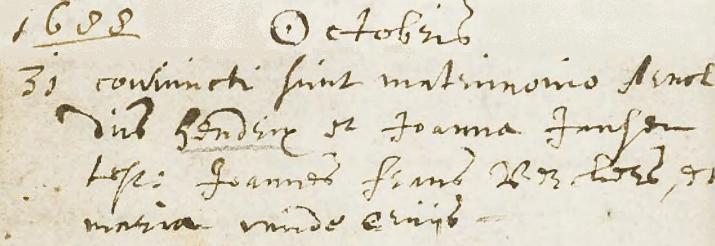 1688 Octobris
31 coniuncti sunt matrimonio
dus Hendrix et Joanna Jansen
test: Joannes Frans et
maria vande Cruijs